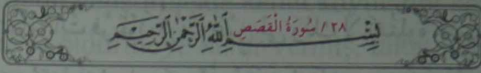 ٢٨ / سُورَةُ الْقَصَصِ
بِسْمِ اللَّهِ الرَّحْمَٰنِ الرَّحِيمِ